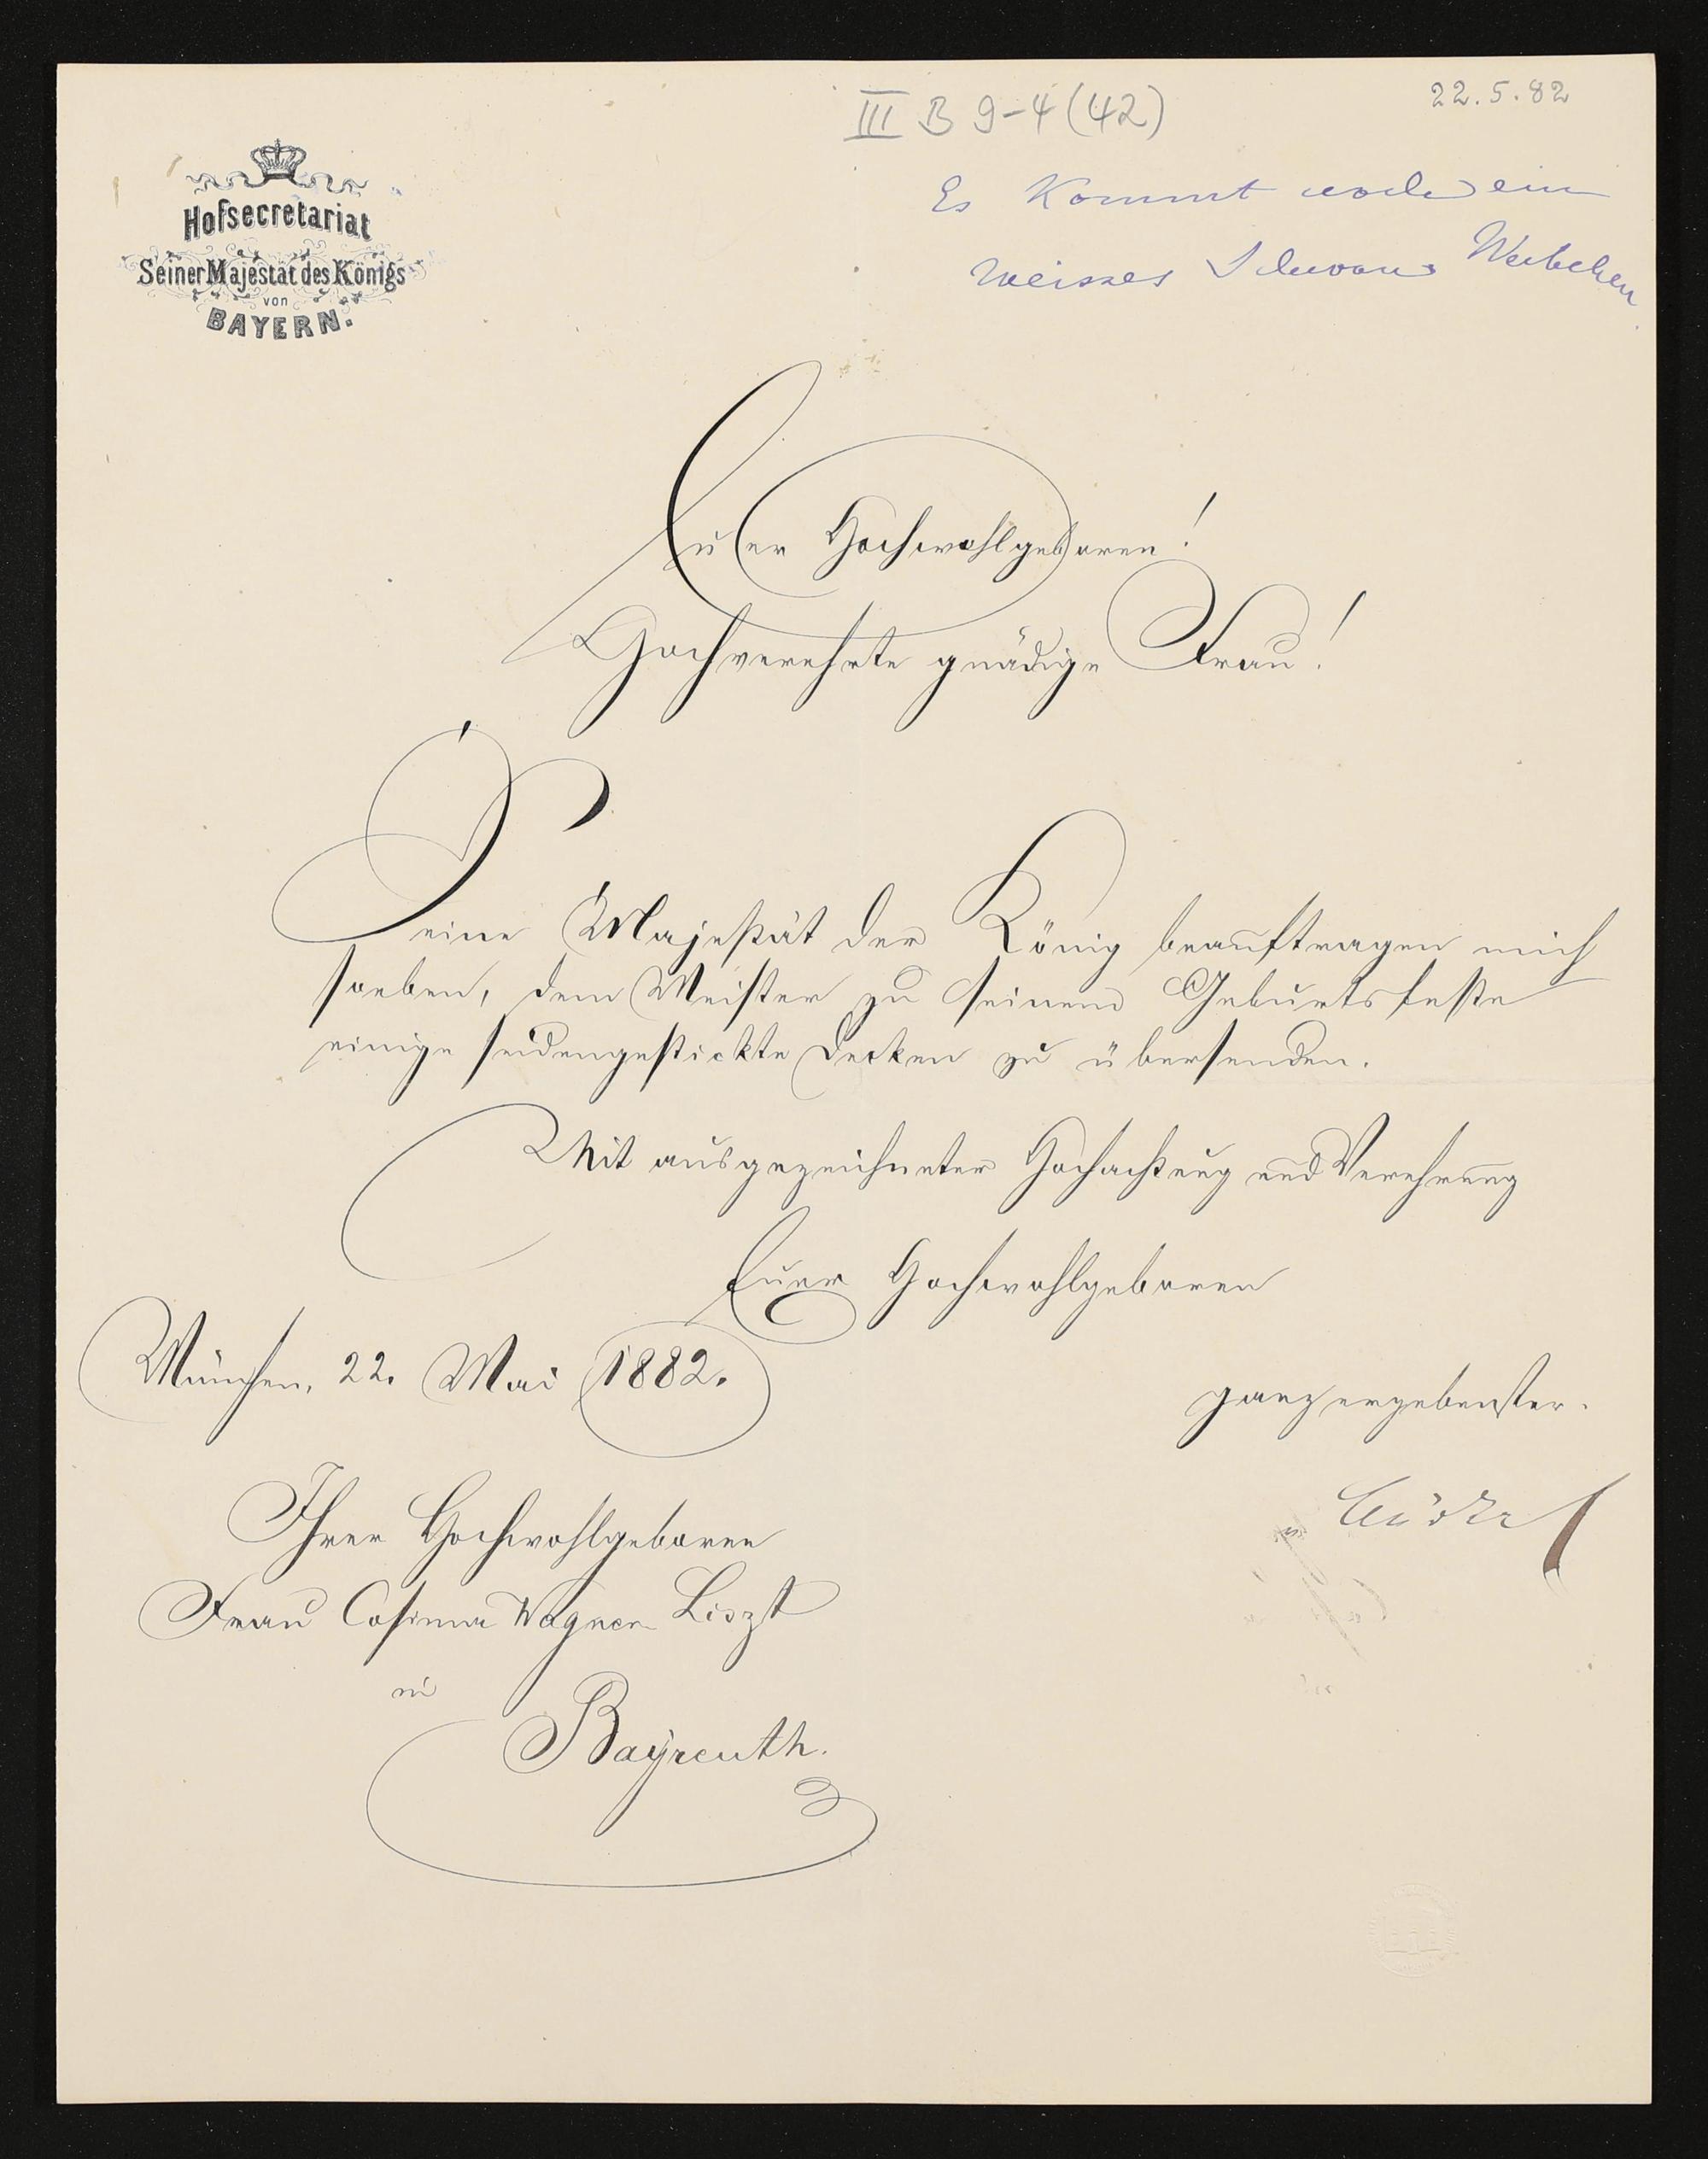 III B 9-4 (42)
22.5.82
Hofsecretariat
Seiner Majestät des Königs
von
BAYERN.
Es Kommt noch ein
weisses Schwan Weibchen
Euer Hochwohlgeboren!
Hochverehrte gnädige Frau!
Seine Majestät der König beauftragen mich
soeben, dem Meister zu seinem Geburtsfeste
einige seidengestickte Decken zu übersenden.
Mit ausgezeichneter Hochachtung und Verehrung
Euer Hochwohlgeboren
München, 22. Mai 1882.
ganz ergebenster.
Bürkel
Ihrer Hochwohlgeboren
Frau Cosima Wagner Liszt
in
Bayreuth.